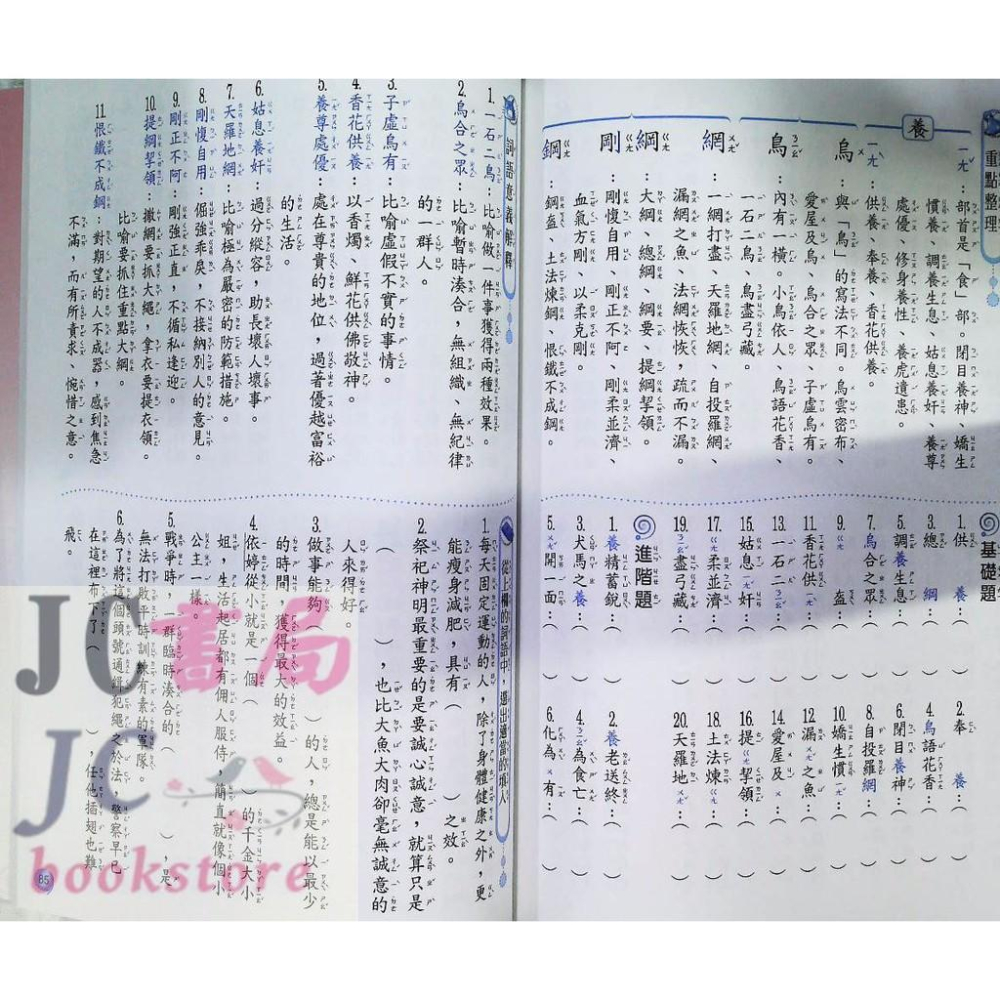 重點整理
養
ㄧㄤˇ：部首是「食」部。閉目養神、嬌生
慣養、調養生息、姑息養奸、養尊
處優、修身養性、養虎遺患。
ㄧㄤˋ：供養、奉養、香花供養。
烏 ㄨ：與「鳥」的寫法不同。烏雲密布、
愛屋及烏、烏合之眾、子虛烏有。
鳥 ㄋㄧㄠˇ：內有一橫。小鳥依人、鳥語花香、
一石二鳥、鳥盡弓藏。
網 ㄨㄤˇ：一網打盡、天羅地網、自投羅網、
漏網之魚、法網恢恢，疏而不漏。
綱 ㄍㄤ：大綱、總綱、綱要、提綱挈領。
剛 ㄍㄤ：剛愎自用、剛正不阿、剛柔並濟、
血氣方剛、以柔克剛。
鋼 ㄍㄤ：鋼盔、土法煉鋼、恨鐵不成鋼。
基礎題
1.供養：（ ）
2.奉養：（ ）
3.總綱：（ ）
4.鳥語花香：（ ）
5.調養生息：（ ）
6.閉目養神：（ ）
7.烏合之眾：（ ）
8.自投羅網：（ ）
9.ㄍㄤ盔：（ ）
10.嬌生慣ㄧㄤˇ：（ ）
11.香花供ㄧㄤˋ：（ ）
12.漏ㄨㄤˇ之魚：（ ）
13.一石二ㄋㄧㄠˇ：（ ）
14.愛屋及ㄨ：（ ）
15.姑息ㄧㄤˇ奸：（ ）
16.提ㄍㄤ挈領：（ ）
17.ㄍㄤ柔並濟：（ ）
18.土法煉ㄍㄤ：（ ）
19.ㄋㄧㄠˇ盡弓藏：（ ）
20.天羅地ㄨㄤˇ：（ ）
進階題
1.養精蓄銳：（ ）
2.養老送終：（ ）
3.犬馬之養：（ ）
4.ㄋㄧㄠˇ為食亡：（ ）
5.ㄨㄤˇ開一面：（ ）
6.化為ㄨ有：（ ）
詞語意義解釋
1.一石二鳥：比喻做一件事獲得兩種效果。
2.烏合之眾：比喻暫時湊合，無組織、無紀律
的一群人。
3.子虛烏有：比喻虛假不實的事情。
4.香花供養：以香燭、鮮花供佛敬神。
5.養尊處優：處在尊貴的地位，過著優越富裕
的生活。
6.姑息養奸：過分縱容，助長壞人壞事。
7.天羅地網：比喻極為嚴密的防範措施。
8.剛愎自用：倔強乖戾，不接納別人的意見。
9.剛正不阿：剛強正直，不循私逢迎。
10.提綱挈領：撒網要抓大繩，拿衣要提衣領。
比喻要抓住重點大綱。
11.恨鐵不成鋼：對期望的人不成器，感到焦急
不滿，而有所責求、惋惜之意。
從上欄的詞語中，選出適當的填入
1.每天固定運動的人，除了身體健康之外，更
能瘦身減肥，具有（ ）之效。
2.祭祀神明最重要的是要誠心誠意，就算只是
（ ），也比大魚大肉卻毫無誠意的
人來得好。
3.做事能夠（ ）的人，總是能以最少
的時間，獲得最大的效益。
4.依婷從小就是一個（ ）的千金大小
姐，生活起居都有佣人服侍，簡直就像個小
公主一樣。
5.戰爭時，一群臨時湊合的（ ），是
無法打敗平時訓練有素的軍隊。
6.為了將這個頭號通緝犯繩之於法，警察早已
在這裡布下了（ ），任他插翅也難
飛。
85
JC書局
JC
bookstore